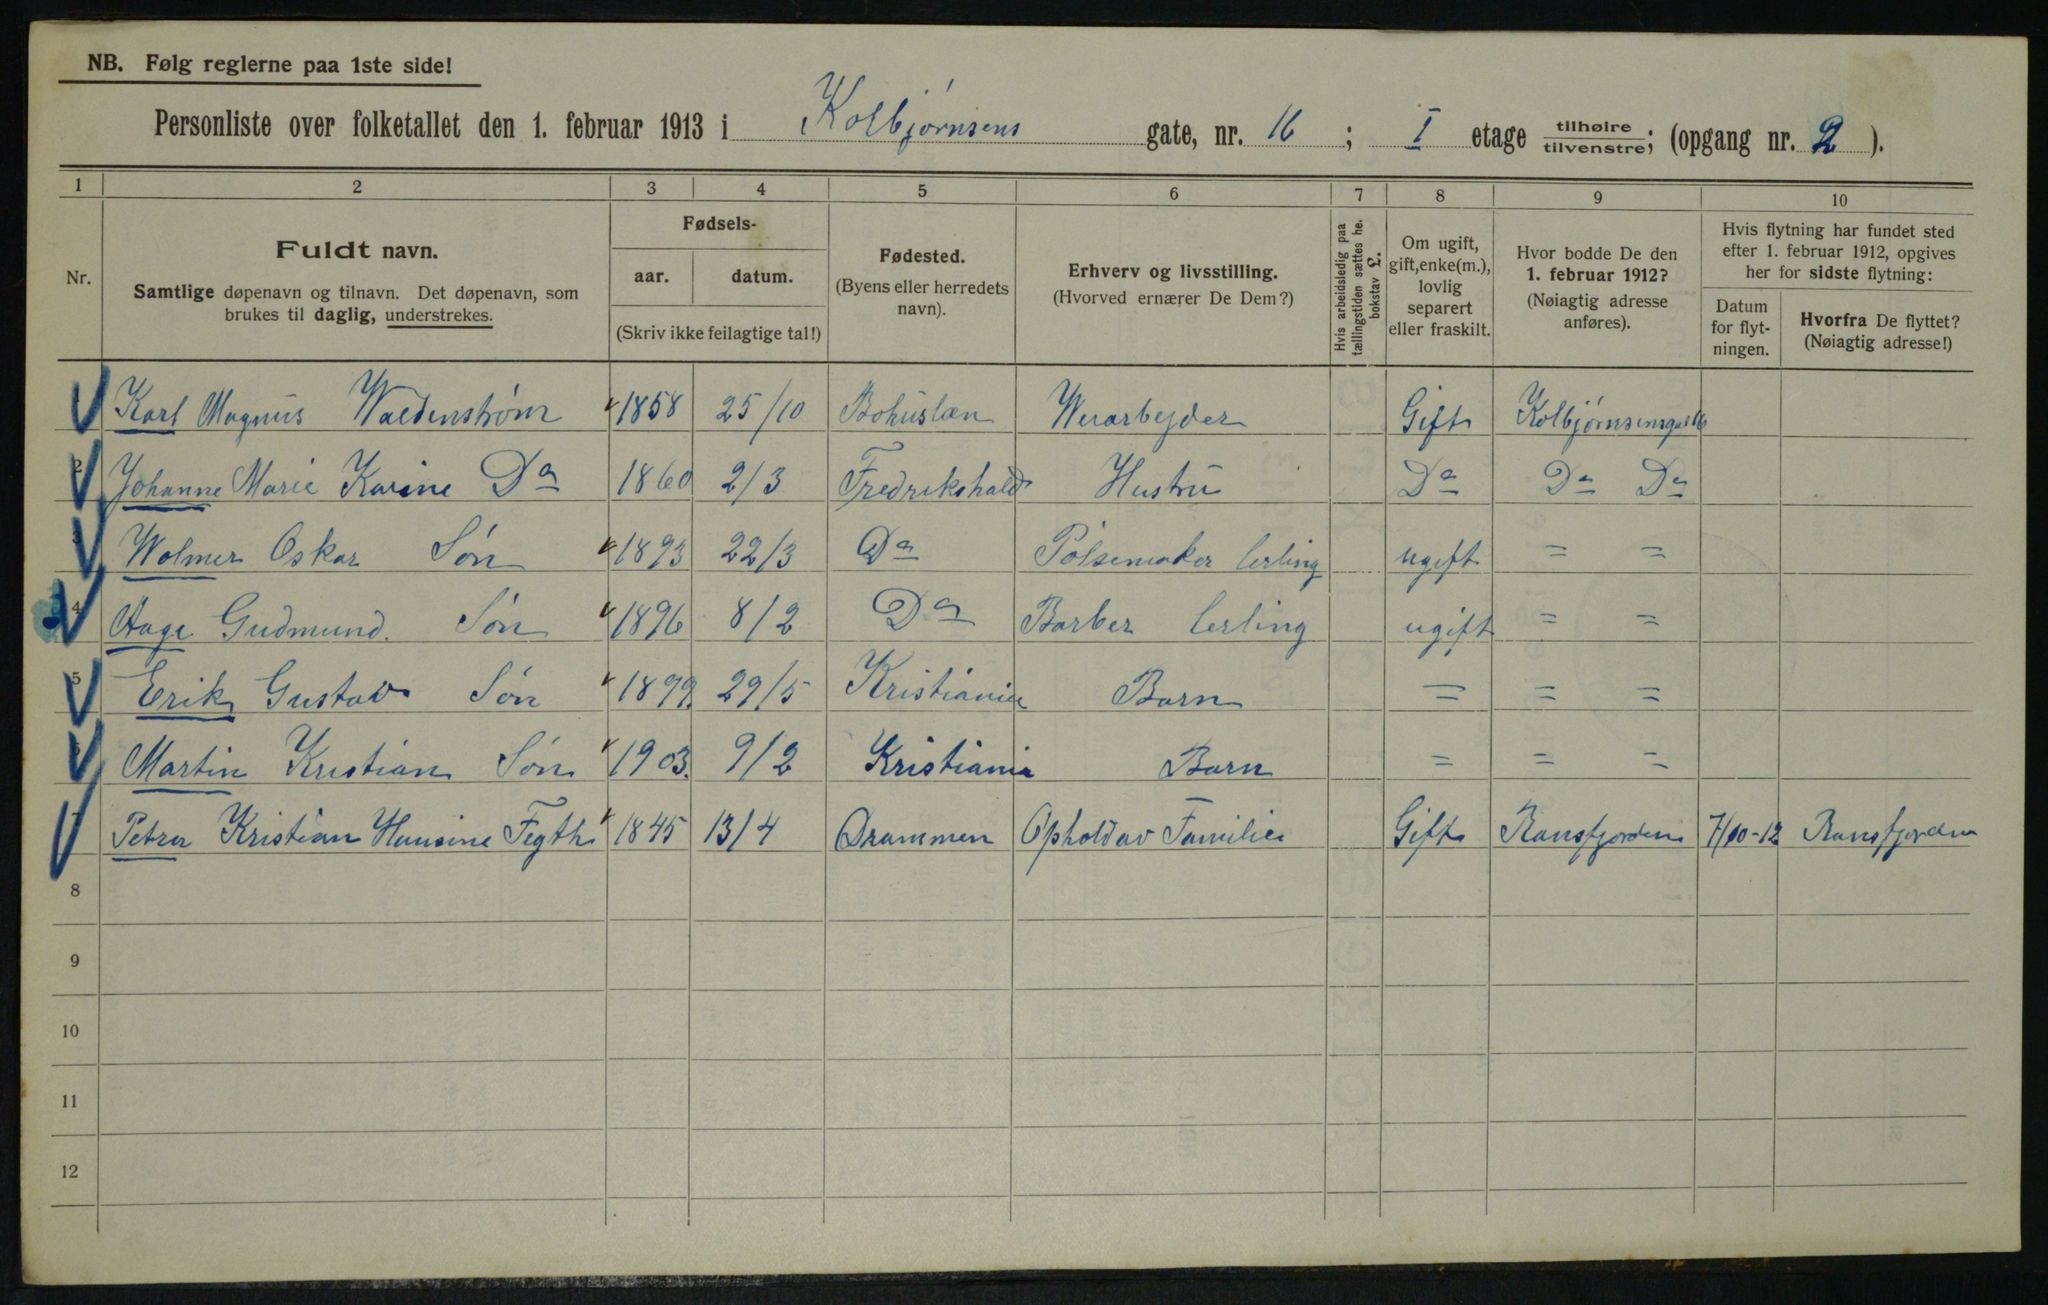 NB. Følg reglerne paa 1ste side!
Personliste over folketallet den 1. februar 1913 i Kolbjørnsens gate, nr. 16 ; I etage tilhøire tilvenstre; (opgang nr. 2 ).
1 2 3 4 5 6 7 8 9 10
Nr.
Fuldt navn.
Samtlige døpenavn og tilnavn. Det døpenavn, som
brukes til daglig, understrekes.
Fødsels-
aar. datum.
(Skriv ikke feilagtige tal!)
Fødested.
(Byens eller herredets
navn).
Erhverv og livsstilling.
(Hvorved ernærer De Dem?)
Hvis arbeidsledig paa
tællingstiden sættes he.
bokstav £.
Om ugift,
gift, enke(m.),
lovlig
separert
eller fraskilt.
Hvor bodde De den
1. februar 1912?
(Nøiagtig adresse
anføres).
Hvis flytning har fundet sted
efter 1. februar 1912, opgives
her for sidste flytning:
Datum
for flyt-
ningen.
Hvorfra De flyttet?
(Nøiagtig adresse!)
1 Karl Magnus Waldenstrøm 1858 25/10 Bohuslæn Gift
2 Johanne Marie Karine Do 1860 2/3 Fredrikshald Hustru Do Do Do
3 Wolmer Oskar Søn 1893 22/3 Do Pølsemaker lerling ugift = =
4 Aage Gudmund. Søn 1896 8/2 Do Barber lerling ugift = =
5 Erik Gustav Søn 1899. 29/5 Kristiania Barn = = =
6 Martin Kristian Søn 1903. 9/2 Kristiania Barn = = =
7 Petra Kristian Hansine Fegth 1845 13/4 Drammen Ophold av Familie Gift Ransfjorden 7/10-12 Ransfjorden
8
9
10
11
12